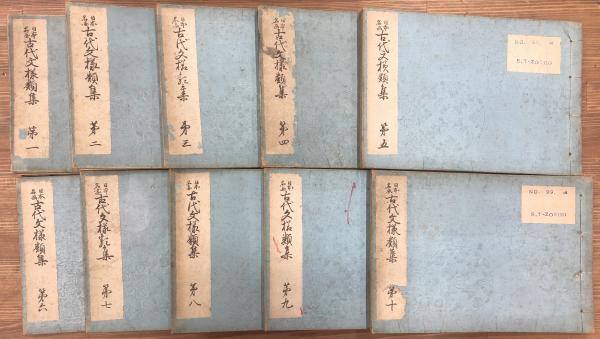 日本
名画
古代文様類集
第一
日本
名画
古代文様類集
第二
日本
名画
古代文様類集
第三
日本
名画
古代文様類集
第四
日本
名画
古代文様類集
第五
日本
名画
古代文様類集
第六
日本
名画
古代文様類集
第七
日本
名画
古代文様類集
第八
日本
名画
古代文様類集
第九
日本
名画
古代文様類集
第十
NO. 99.